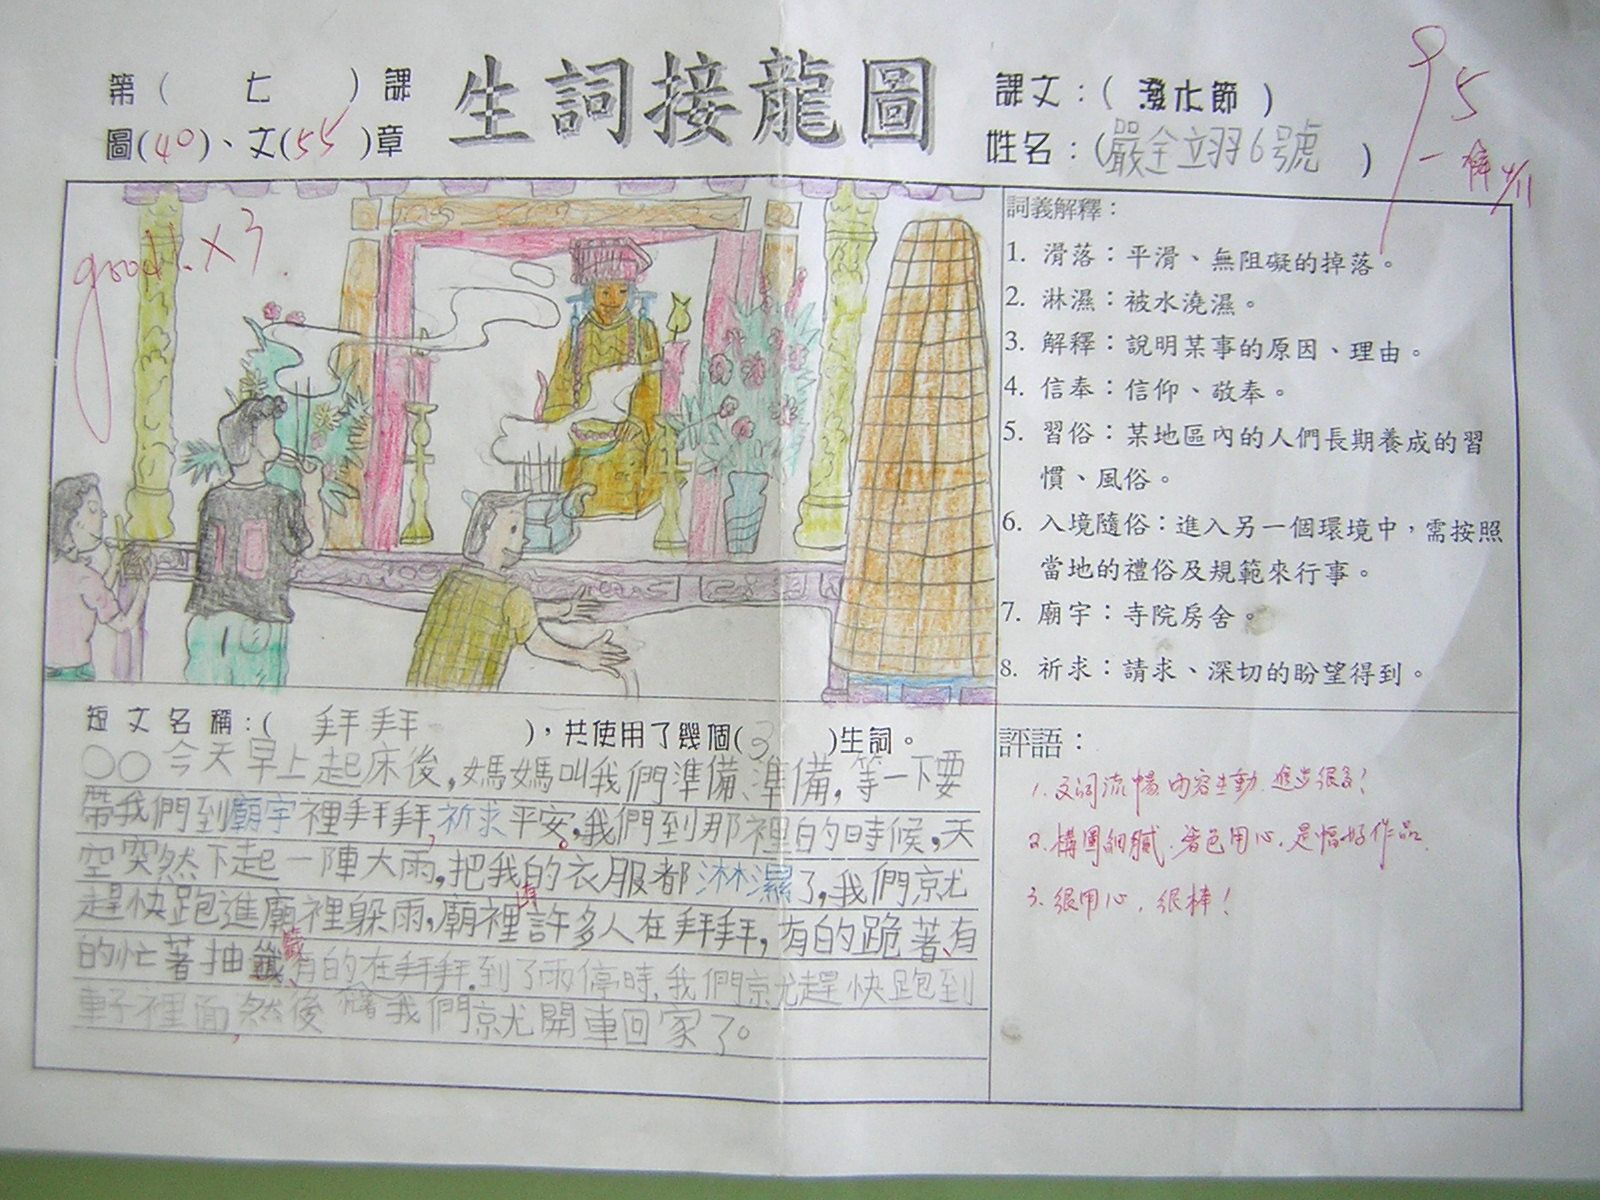 第（ 七 ）課
生詞接龍圖
課文：( 潑水節 )
圖(40)、文(55)章
姓名：(嚴全翊6號 )
95
4/11
good!.×3.
詞義解釋：
1. 滑落：平滑、無阻礙的掉落。
2. 淋濕：被水澆濕。
3. 解釋：說明某事的原因、理由。
4. 信奉：信仰、敬奉。
5. 習俗：某地區內的人們長期養成的習
慣、風俗。
6. 入境隨俗：進入另一個環境中，需按照
當地的禮俗及規範來行事。
7. 廟宇：寺院房舍。
8. 祈求：請求、深切的盼望得到。
短文名稱:( 拜拜 )，共使用了幾個(3 )生詞。
○○今天早上起床後,媽媽叫我們準備、準備,等一下要
帶我們到廟宇裡拜拜,祈求平安。我們到那裡的時候,天
空突然下起一陣大雨,把我的衣服都淋濕了,我們就
趕快跑進廟裡躲雨,廟裡有許多人在拜拜,有的跪著、有
的忙著抽籤、有的在拜拜.到了雨停時,我們就趕快跑到
車子裡面,然後 我們就開車回家了。
評語：
1.文詞流暢.內容生動.進步很多!
2.構圖細膩.著色用心.是幅好作品.
3.很用心,很棒!